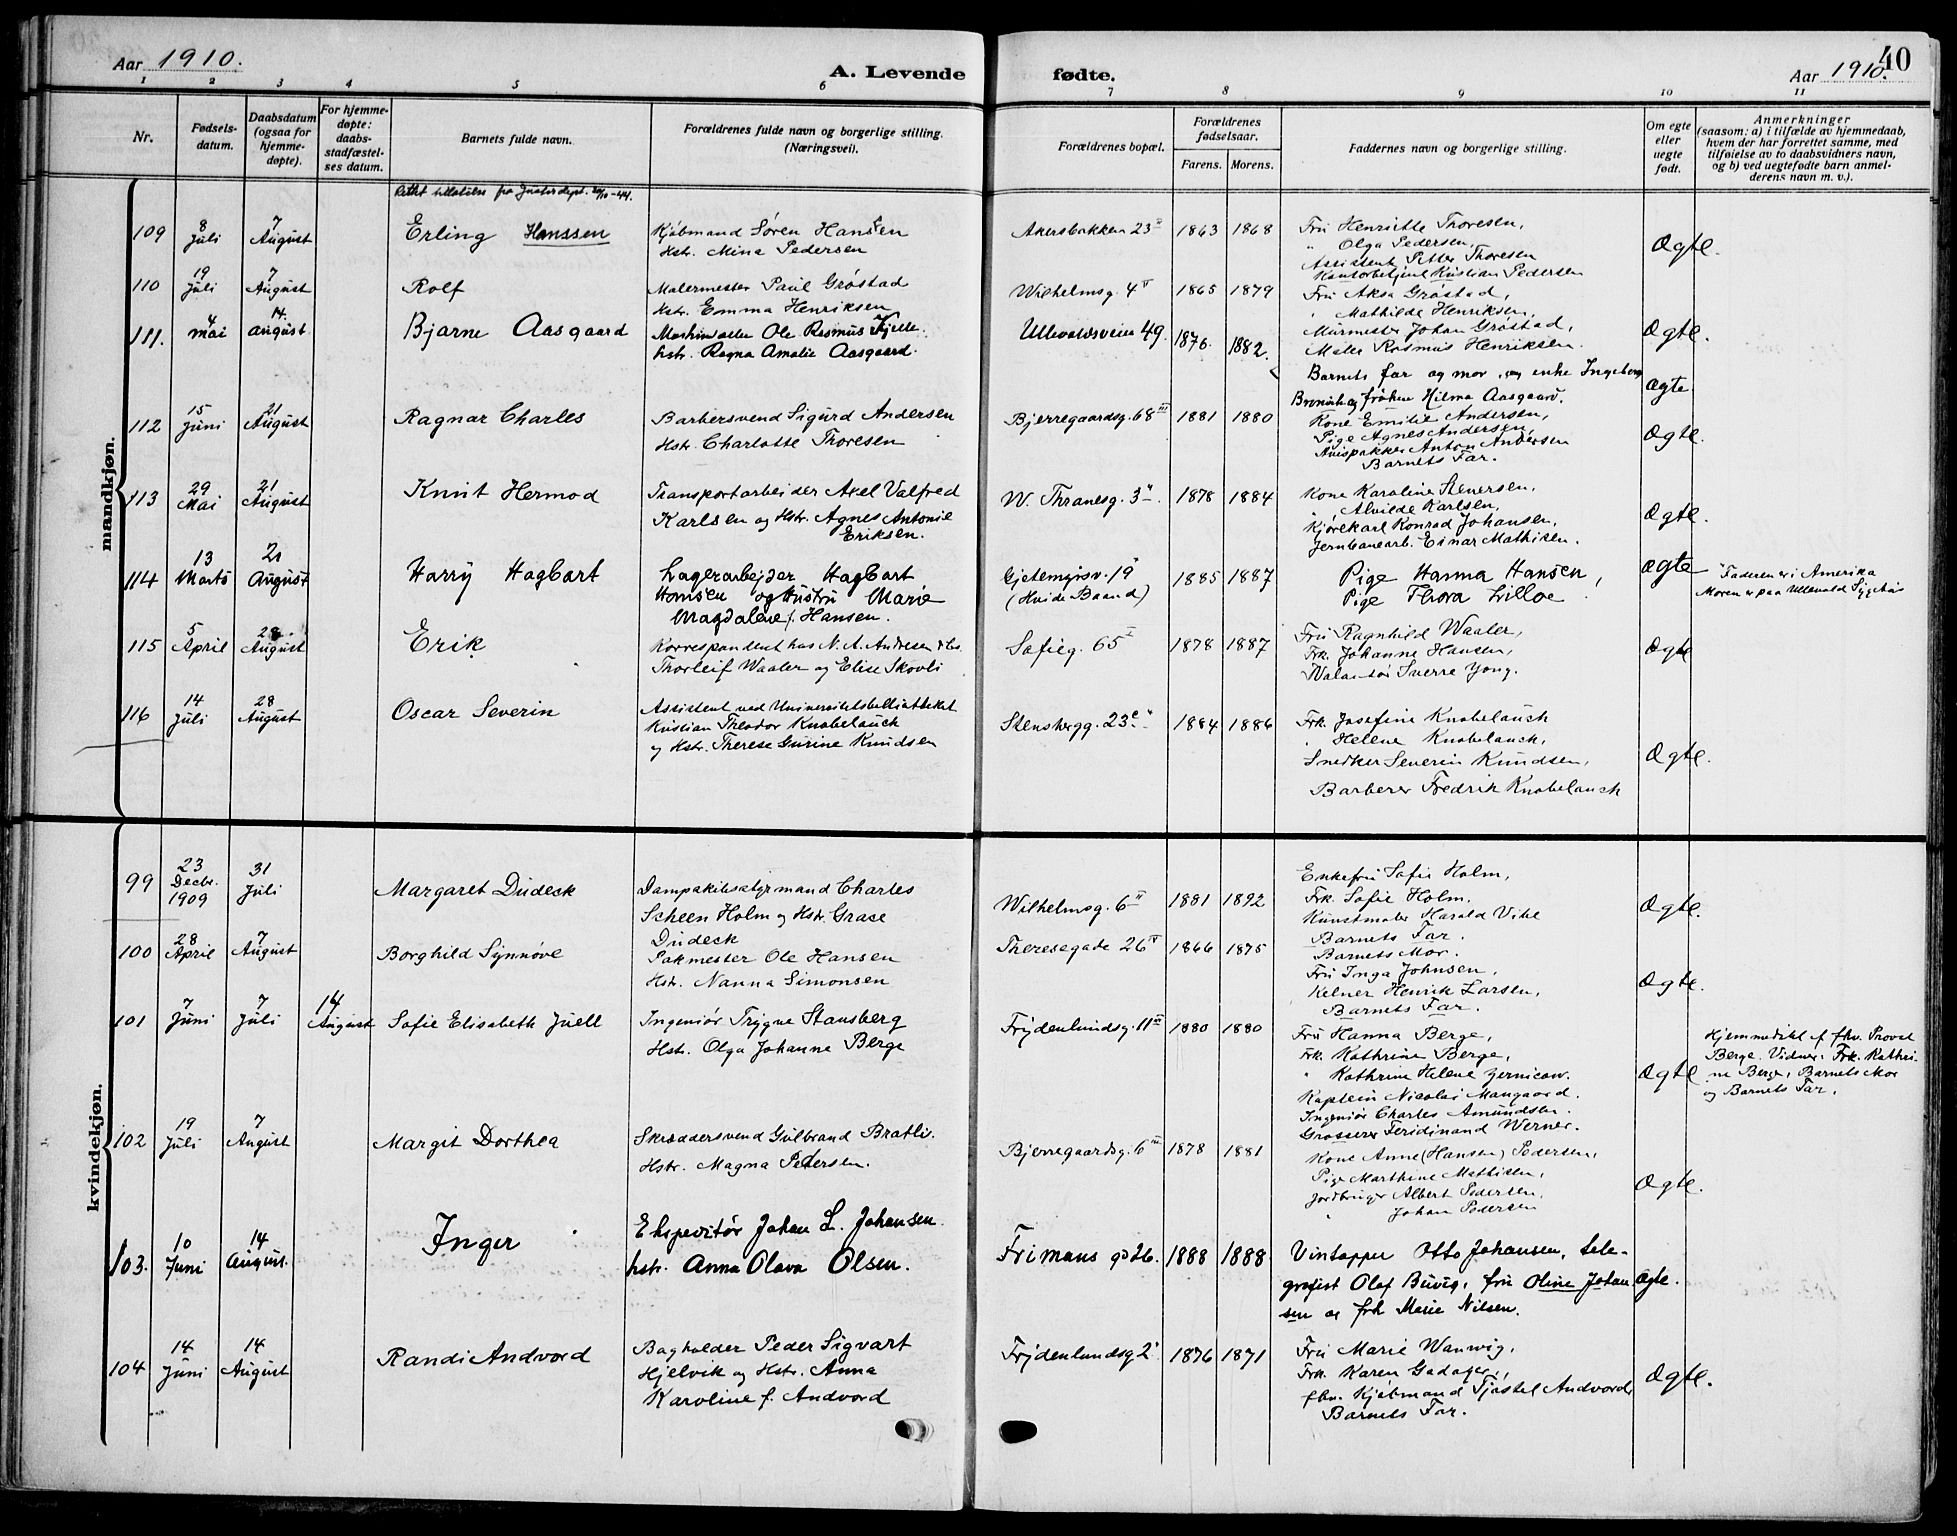 Aar 1910.
A. Levende
fødte.
Aar 1910.
40
1 2 3 4 5 6 7 8 9 10 11
Nr.
Fødsels-
datum.
Daabsdatum
(ogsaa for
hjemme-
døpte).
For hjemme-
døpte:
daabs-
stadfæstel-
ses datum.
Barnets fulde navn.
Forældrenes fulde navn og borgerlige stilling.
(Næringsvei).
Forældrenes bopæl.
Forældrenes
fødselsaar.
Farens. Morens.
Faddernes navn og borgerlige stilling.
Om egte
eller
uegte
født.
Anmerkninger
(saasom: a) i tilfælde av hjemmedaab,
hvem der har forrettet samme, med
tilføielse av to daabsvidners navn,
og b) ved uegtefødte barn anmel-
derens navn m. v.).
mandkjøn.
109
8
Juli
7
August
Erling Hanssen
Kjøbmand Søren Hanssen
Hstr. Mina Pedersen
Akersbakken 23
1863 1868
Fru Henriette Thoresen,
" Olga Pedersen,
Assistent Petter Thoresen
Kontorbetjent Kristian Pedersen
Ægte.
110
19
Juli
7
August
Rolf
Malermester Paul Grøstad
Hstr. Emma Henriksen
Wilhelmsg. 4
1865 1879
Fru Aksa Grøstad,
" Mathilde Henriksen,
Murmester Johan Grøstad,
Maler Rasmus Henriksen.
Ægte.
111.
4
mai
14.
august
Bjarne Aasgaard
Ole Rasmus Kjelle.
hstr. Ragna Amalie Aasgaard.
Ullevoldsveien 49.
1876. 1882.
Barnets far og mor, enke Ingeborg
frøken Hilma Aasgaard.
ægte
112
15
Juni
21
August
Ragnar Charles
Barbersvend Sigurd Andersen
Hstr. Charlotte Thoresen
Bjerregaardsg. 68 III
1881 1880
Kone Emilie Andersen,
Pige Agnes Andersen
Avispakker Anton Andersen
Barnets Far.
Ægte.
113
29
Mai
21
August
Knut Hermod
Transportarbeider Axel Valfred
Karlsen og Hstr. Agnes Antonie
Eriksen.
W. Thranesg. 3
1878 1884
Kone Karoline Stenersen,
" Alvilde Karlsen,
Kjørekarl Konrad Johansen,
Jernbanearb. Einar Mathisen.
Ægte.
114
13
Marts
21
August
Harry Hagbart
Lagerarbejder Hagbart
Hansen og Hustru Marie
Magdalene f. Hansen.
Gjetemyrsv. 19
(Hvide Baand)
1885 1887
Pige Hanna Hansen,
Pige Thora Lilloe
ægte
Faderen er i Amerika
Moren er paa Ullevold Sygehus
115
5
April
28
August
Erik
Korrespondent hos N. A. Andresen & Co.
Thorleif Waaler og Elise Skovli
Sofieg. 65
1878 1887
Fru Ragnhild Waaler,
Frk. Johanne Hansen,
Sverre Yong.
Ægte
116
14
Juli
28
August
Oscar Severin
Assistent ved Universitetsbibliotheket
Kristian Theodor Knobelauch
og Hstr. Therese Gurine Knudsen
Stensbergg. 23c
1884 1886
Frk. Josefine Knobelauch
" Helene Knobelauch,
Snedker Severin Knudsen,
Barberer Fredrik Knobelauch
Ægte.
kvindekjøn.
99
23
Decbr.
1909
31
Juli
Margaret Dudeck
Dampskibsstyrmand Charles
Scheen Holm og Hstr. Grace
Dudeck
Wilhelmsg. 6 II
1881 1892
Enkefru Sofie Holm,
Frk. Sofie Holm,
Kunstmaler Harald Vibe
Barnets Far.
Barnets Mor.
Ægte.
100
28
April
7
August
Borghild Synnøve
Pakmester Ole Hansen
Hstr. Nanna Simonsen
Theresegade 26 IV
1866 1875
Fru Inga Johnsen,
Kelner Henrik Larsen,
Barnets Far.
Ægte.
101
7
Juni
7
Juli
14
August
Sofie Elisabeth Juell
Ingeniør Trygve Stansberg
Hstr. Olga Johanne Berge
Frydenlundsg. 11 III
1880 1880
Fru Hanna Berge,
Frk. Kathrine Berge,
" Kathrine Helene Zernicow.
Kaptein Nicolai Mangaard.
Ingeniør Charles Amundsen.
Grosserer Feridinand Werner.
Ægte
Hjemmedøbt af fhv. Provst
Berge. Vidner: Frk. Kathri-
ne Berge, Barnets Mor
og Barnets Far.
102
19
Juli
7
August
Margit Dorthea
Skræddersvend Gulbrand Bratli.
Hstr. Magna Pedersen.
Bjerregaardsg. 6 III
1878 1881
Kone Anne (Hansen) Pedersen,
Pige Marthine Mathisen,
Jordbruger Albert Pedersen,
" Johan Pedersen
Ægte.
103.
10
Juni
14
August.
Inger
Ekspeditør Johan L. Johansen.
hstr. Anna Olava Olsen.
Frimans gd 26.
1888 1888
Vintapper Otto Johansen, tele-
grafist Olaf Buvig, fru Oline Johan
sen og frk Marie Nilsen.
Ægte.
104
14
Juni
14
August
Randi Andvord
Bogholder Peder Sigvart
Hjelvik og Hstr. Anna
Karoline f. Andvord
Frydenlundsg 2
1876 1871
Fru Marie Wanvig,
Frk. Karen
fhv. Kjøbmand Andvord,
Barnets Far.
Ægte.